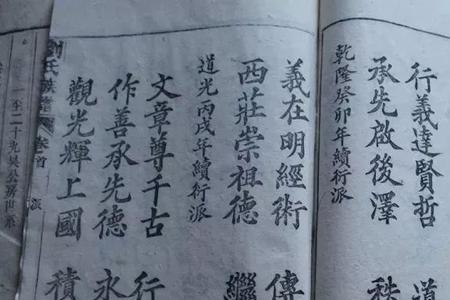 行義達賢哲 道
承先啟後澤 秩
乾隆癸卯年續行派
義在明經術 傳
西莊崇祖德 繼
道光丙戌年續行派
文章尊千古 行
作善承先德 永
觀光輝上國 積
劉氏族譜 卷首 派
一至二十允吴公房世系